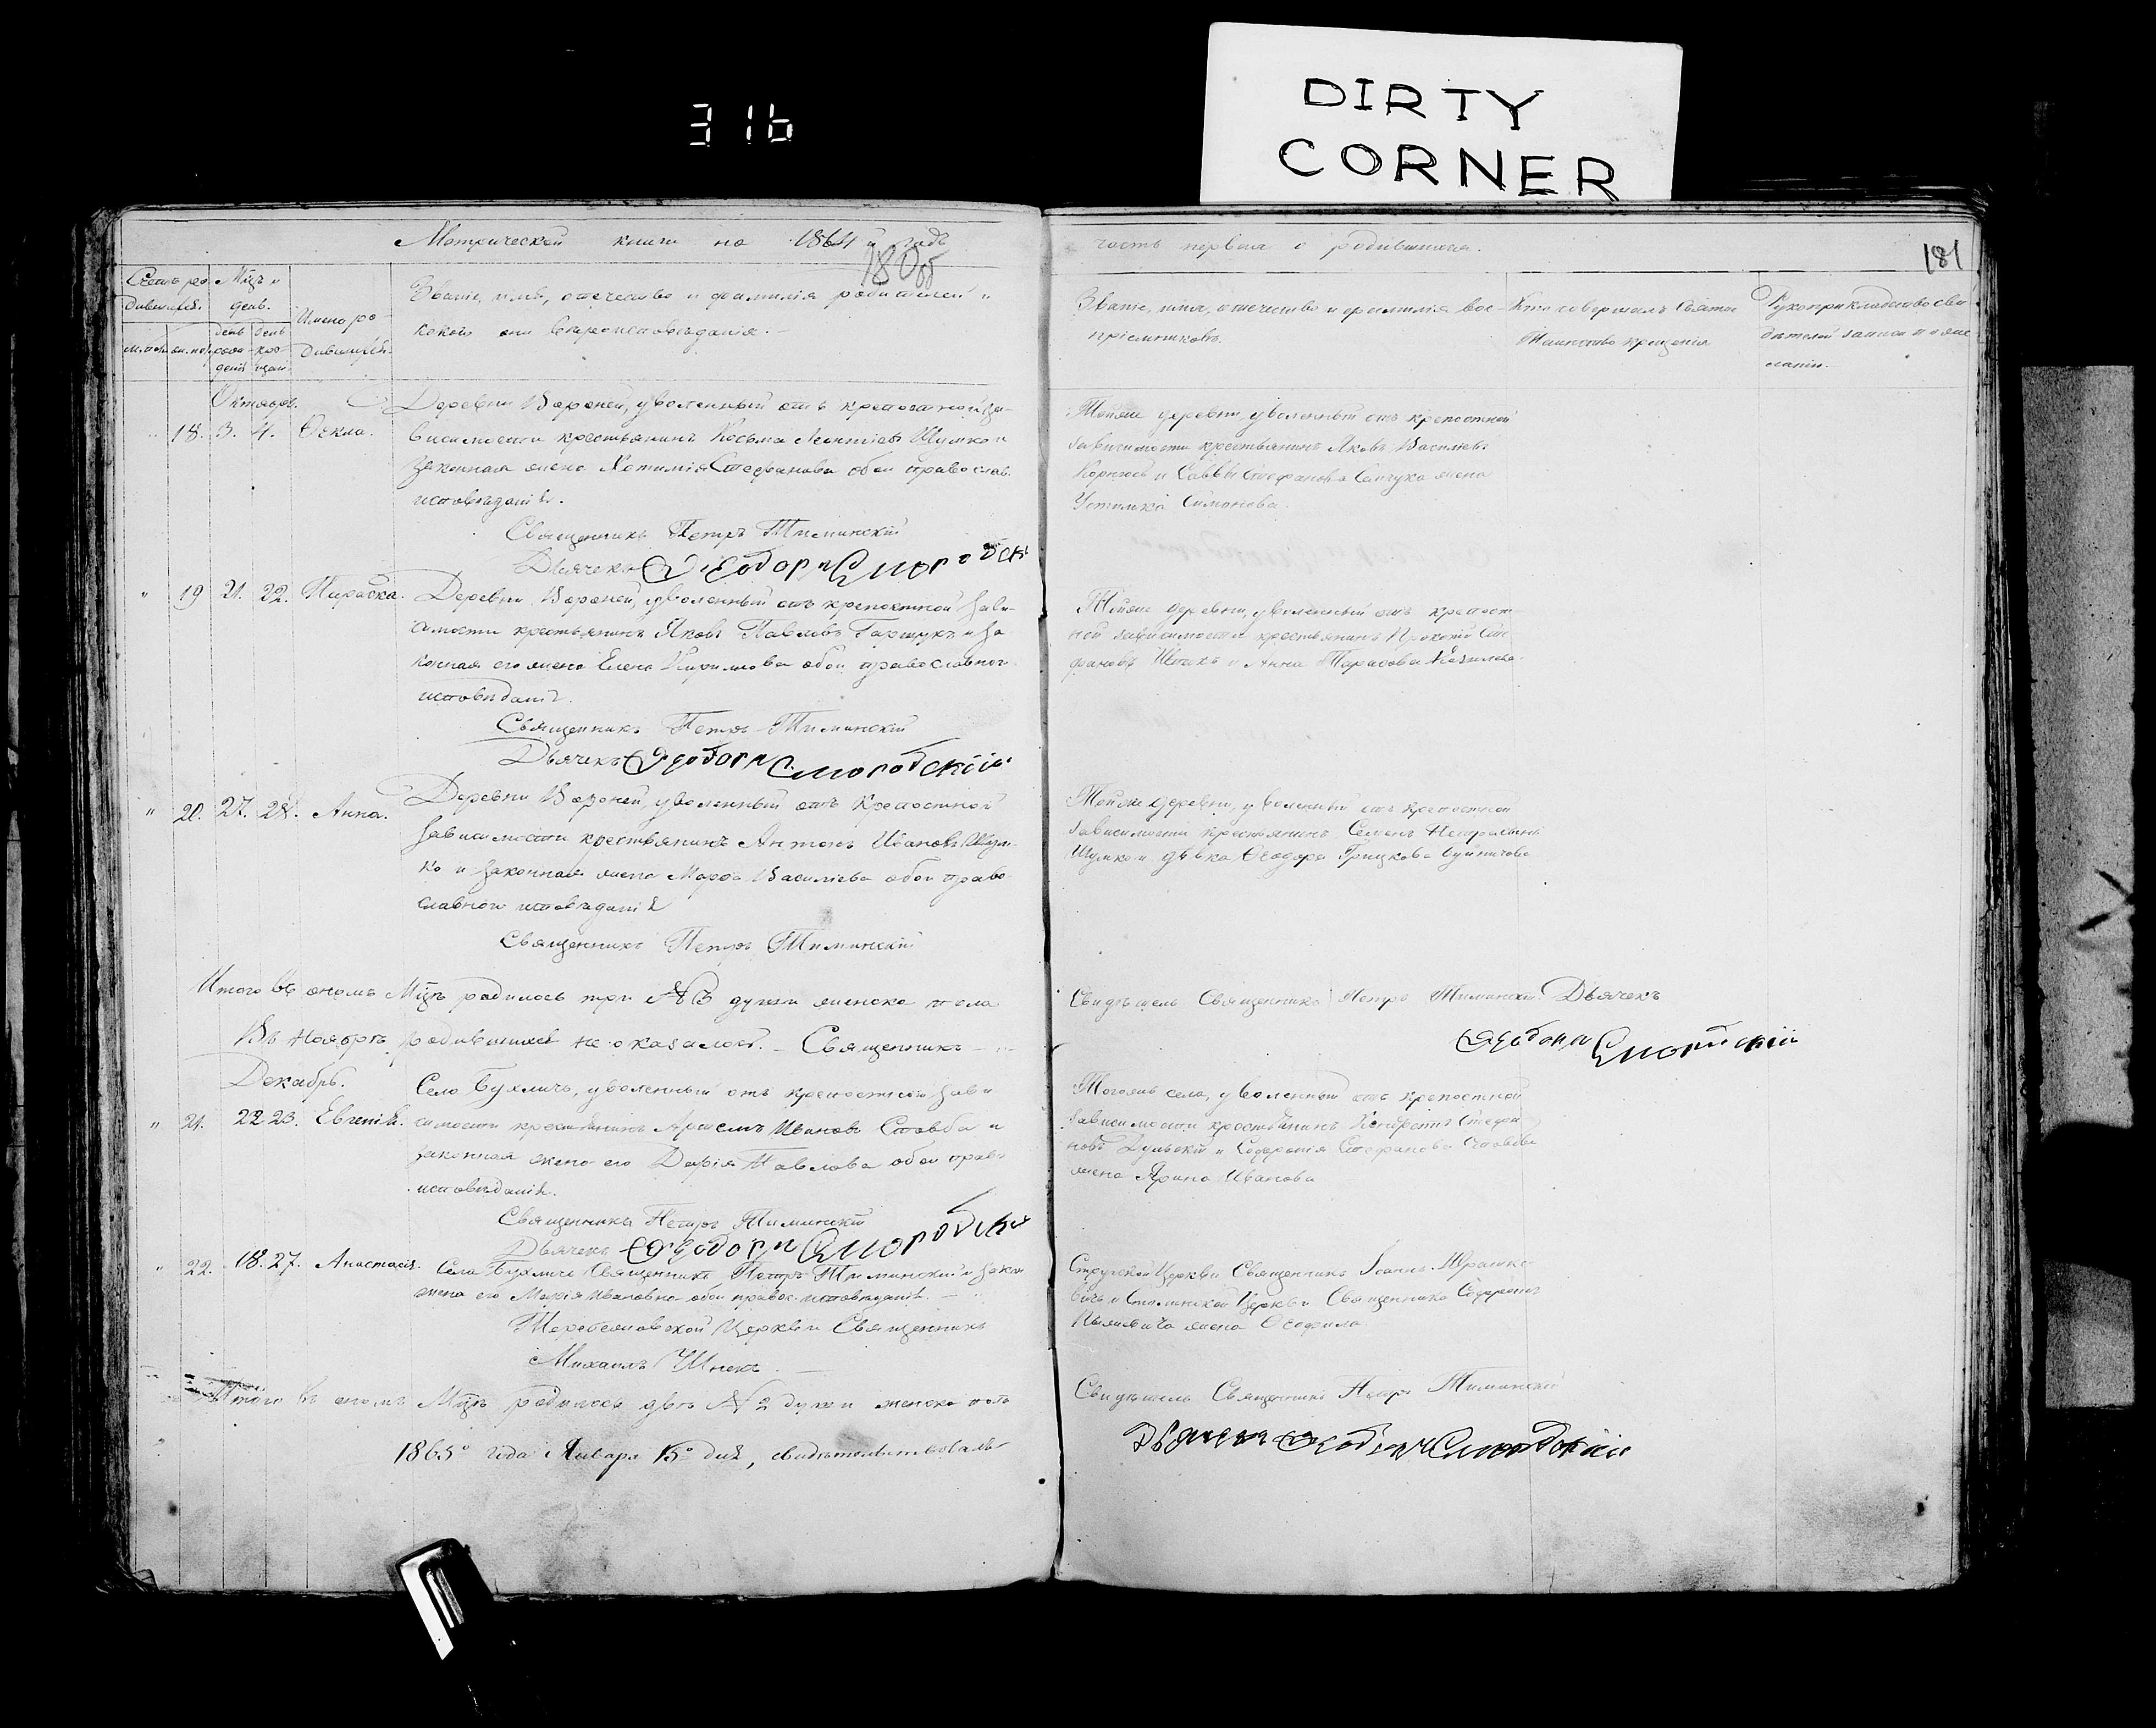 DIRTY
CORNER
316
Метрической книги на 1864й годъ
180об
часть первая о родившихся.
181
Счетъ ро-
дившихся.
Мѣц. и
день.
Имена ро-
дившихся.
муж. п. жен. пол.
день рож-
денія
день кре-
щен.
Званіе, имя, отечество и фамилія родителей и
какого они вѣроисповѣданія.
Званіе, имя, отечество и фамилія вос-
пріемниковъ.
Кто совершалъ Святое
Таинство крещенія
Рукоприкладство сви-
дѣтелей записи по же-
ланію.
Октябрь.
" 18. 3. 4. Ѳекла.
Деревни Вороней, уволенный отъ крепостной за-
висимости крестьянинъ Косьма Леонтіевъ Шумко и
законная жена Хотимія Стефанова обои православ.
исповѣданія.
Священникъ Петръ Тиминскій
Дьячекъ Ѳеодоръ Смородскій
Тойже деревни, уволенный отъ крепостной
зависимости крестьянинъ Яковъ Васильевъ
и Саввы Стефанова жена
Симонова.
" 19 21. 22. Параска.
Деревни Вороней, уволенный отъ крепостной зави-
симости крестьянинъ Яковъ Павловъ Гарщукъ и за-
конная его жена Елена Кирилова обои православного
исповѣданія.
Священникъ Петръ Тиминскій
Дьячекъ Ѳеодоръ Смородскій
Тойже деревни, уволенный отъ крепост-
ной зависимости крестьянинъ Прокопій Сте-
фановъ и Анна Тарасова
" 20. 27. 28. Анна.
Деревни Вороней, уволенный отъ крепостной
зависимости крестьянинъ Антонъ Ивановъ Шум-
ко и законная жена Марфа Василіева обои право-
славного исповѣданія
Священникъ Петръ Тиминскій
Тойже деревни, уволенный отъ крепостной
зависимости крестьянинъ Семенъ
Шумко и дѣвка Ѳеодора Грицкова
Итого въ ономъ Мѣцѣ родилось три № 3 души женска пола
Свидѣтель Священникъ Петръ Тиминскій Дьячекъ
Ѳеодоръ Смородскій
Въ Ноябрѣ родившихся не оказалось. — Священникъ —
Декабрь.
" 21. 22 23. Евгенія.
Село Бухличъ, уволенный отъ крепостной зави
симости крестьянинъ Артемъ Ивановъ Стовба и
законная жена его Дарія Павлова обои прав.
исповѣданія.
Священникъ Петръ Тиминскій
Дьячекъ Ѳеодоръ Смородскій
Тогожъ села, уволенный отъ крепостной
зависимости крестьянинъ Кондратъ Стефа-
новъ и Софронія Стефанова Стовбы
жена Ярина Иванова
" 22. 18. 27. Анастасія.
Села Бухличъ Священникъ Петръ Тиминскій и закон.
жена его Марія Ивановна обои правос. исповѣданія. —
Теребежовской Церкви Священникъ
Михаилъ
Стругской Церкви Священникъ Іоаннъ
и Столинской Церкви Священника Софронія
жена Ѳеофила
Итого въ ономъ Мѣцѣ родилось двѣ № 2 души женска пола
Свидѣтель Священникъ Петръ Тиминскій
1865о года Января 15о дня, свидѣтельствовалъ
Дьячекъ Ѳеодоръ Смородскій